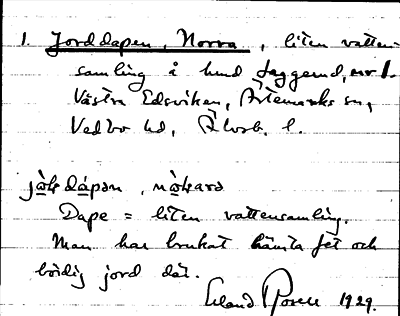 1. Jorddapen, Norra, liten vatten-
samling å hmd Jaggerud, nr 1.
Västra Edsviken, Ärtemarks sn,
Vedbo hd, Älvsb. l.
dápen,
Dape = liten vattensamling.
Man har brukat hämta fet och
bördig jord där.
Erland Rosell 1929.